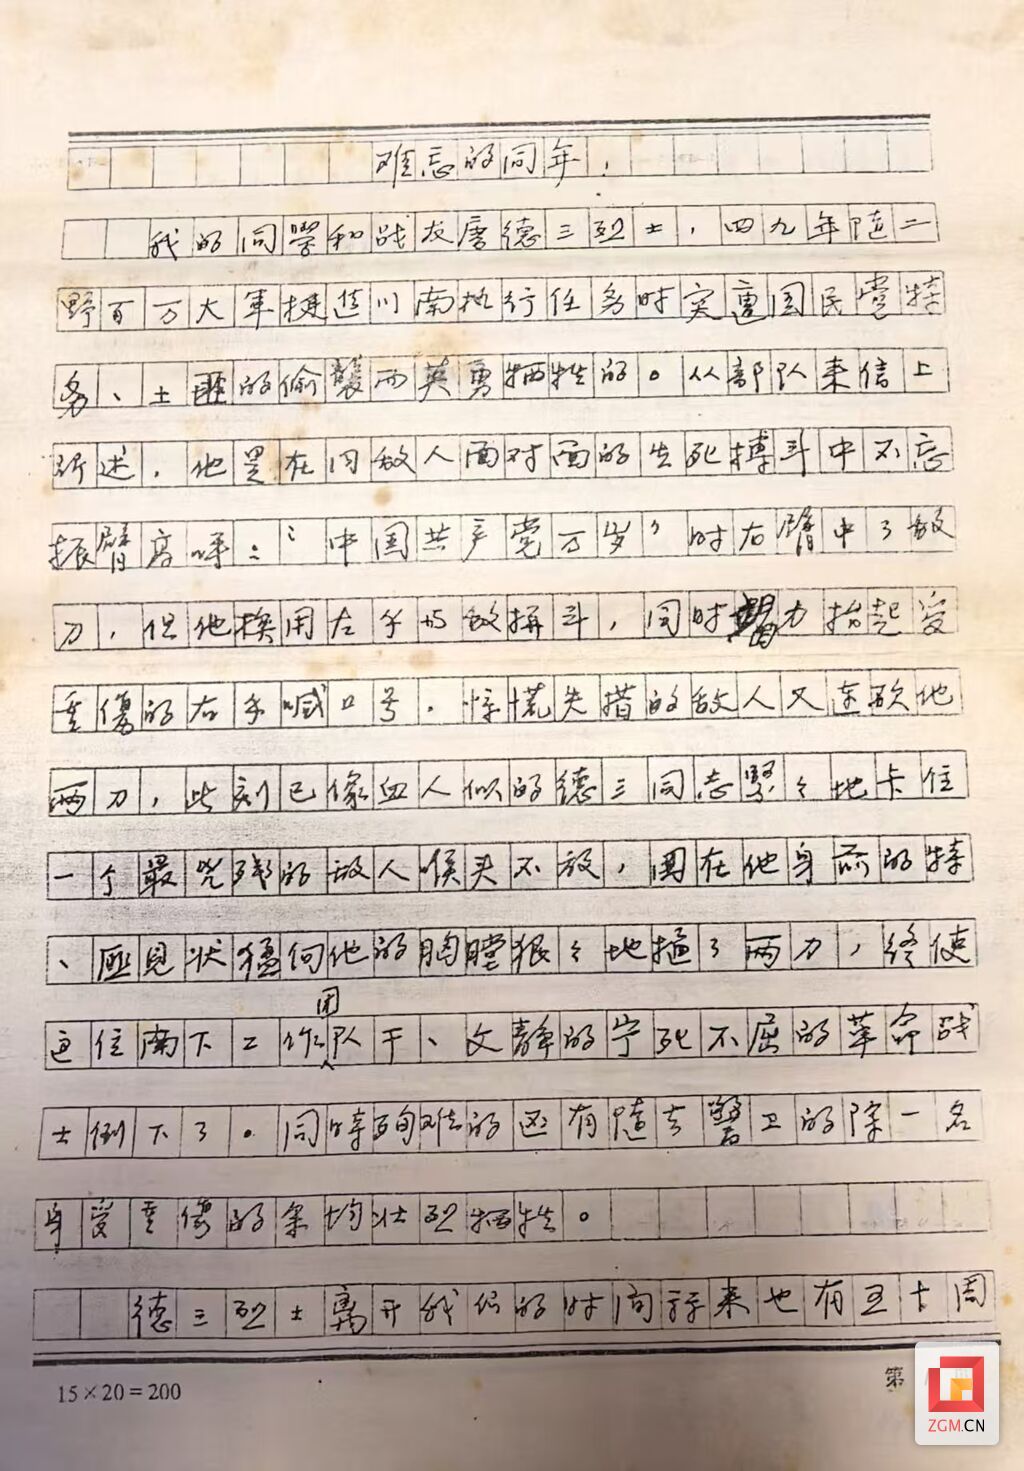 难忘的同年，
我的同学和战友唐德三烈士，四九年随二
野百万大军挺进川南执行任务时突遭国民党特
务、土匪的偷襲而英勇牺牲的。从部队来信上
所述，他是在同敌人面对面的生死搏斗中不忘
振臂高呼：“中国共产党万岁”时右臂中了敌
刀，但他换用左手与敌拼斗，同时力抬起受
重傷的右手喊口号．惊慌失措的敌人又连砍他
两刀，此刻已像血人似的德三同志緊々地卡住
一个最兇残的敌人喉头不放，围在他身前的特
、匪見状猛向他的胸膛狠々地捅了两刀，终使
这位南下工作团队干、文静的宁死不屈的革命战
士倒下了。同時殉难的还有随去警卫的除一名
身受重傷的余均壮烈牺牲。
德三烈士离开我们的时间算来也有五十周
15×20=200
第
ZGM.CN